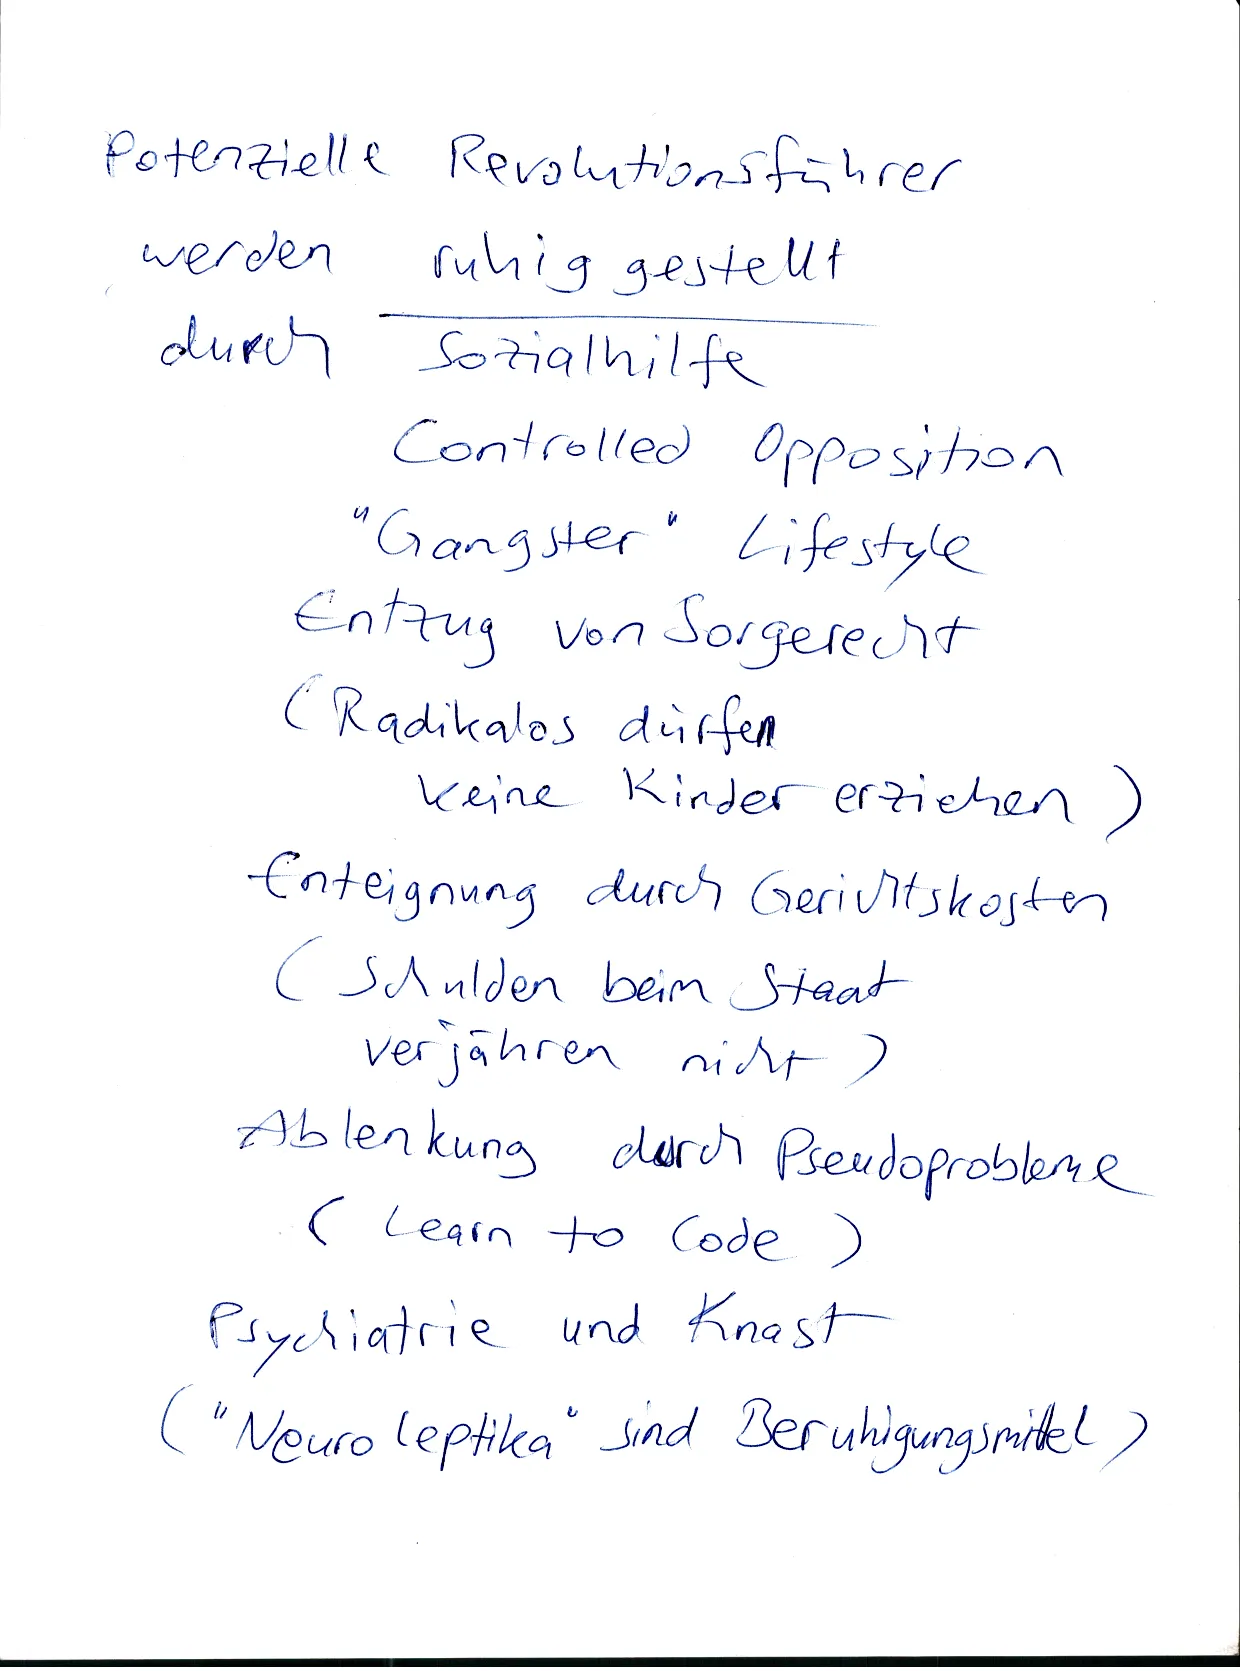 Potenzielle Revolutionsführer
werden ruhig gestellt
durch Sozialhilfe
Controlled Opposition
"Gangster" Lifestyle
Entzug von Sorgerecht
(Radikalos dürfen
keine Kinder erziehen)
Enteignung durch Gerichtskosten
(Schulden beim Staat
verjähren nicht)
Ablenkung durch Pseudoprobleme
(Learn to Code)
Psychiatrie und Knast
("Neuroleptika" sind Beruhigungsmittel)